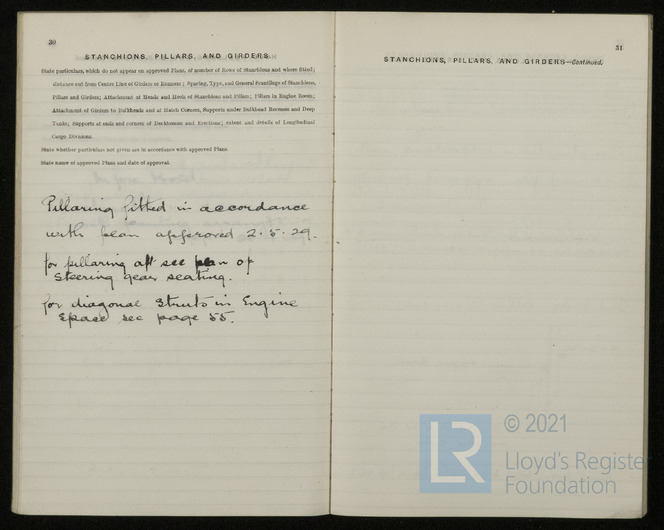 30
STANCHIONS, PILLARS, AND GIRDERS.
State particulars, which do not appear on approved Plans, of number of Rows of Stanchions and where fitted;
distance out from Centre Line of Girders or Runners; Spacing, Type, and General Scantlings of Stanchions,
Pillars and Girders; Attachment at Heads and Heels of Stanchions and Pillars; Pillars in Engine Room;
Attachment of Girders to Bulkheads and at Hatch Corners, Supports under Bulkhead Recesses and Deep
Tanks; Supports at ends and corners of Deckhouses and Erections; extent and details of Longitudinal
Cargo Divisions.
State whether particulars not given are in accordance with approved Plans.
State name of approved Plans and date of approval.
Pillaring fitted in accordance
with plan approved 2.5.29.
for pillaring aft see plan of
Steering gear seating.
for diagonal Struts in Engine
Space see page 55.
31
STANCHIONS, PILLARS, AND GIRDERS—Continued.
LR
© 2021
Lloyd's Register
Foundation